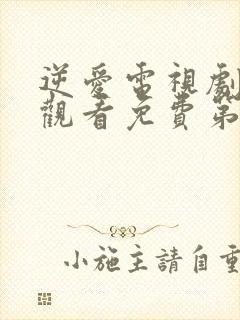 逆愛電視劇
觀看免費第
小施主請自重